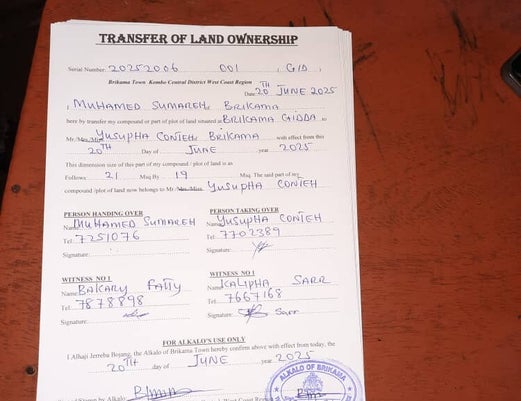 TRANSFER OF LAND OWNERSHIP
Serial Number: 20252006 001 , GID ,
Brikama Town Kombo Central District West Coast Region
Date: 20TH JUNE 2025
I, MUHAMED SUMAREH BRIKAMA
here by transfer my compound or part of plot of land situated at BRIKAMA GIDDA to
Mr./Mrs./Miss. YUSUPHA CONTEH BRIKAMA with effect from this
20TH Day of JUNE year 2025
This dimension size of this part of my compound / plot of land is as
Follows 21 Msq By 19 Msq. The said part of my
compound /plot of land now belongs to Mr./Mrs./Miss. YUSUPHA CONTEH
PERSON HANDING OVER PERSON TAKING OVER
Name: MUHAMED SUMAREH Name: YUSUPHA CONTEH
Tel: 7251076 Tel: 7702389
Signature: Signature:
WITNESS NO 1 WITNESS NO 1
Name: BAKARY FATTY Name: KALIPHA SARR
Tel: 7878898 Tel: 7667168
Signature: Signature: Sarr
FOR ALKALO'S USE ONLY
I Alhaji Jerreba Bojang, the Alkalo of Brikama Town hereby confirm above with effect from today, the
20TH day of JUNE year 2025
by Alkalo
West Coast Region
ALKALO OF BRIKAMA